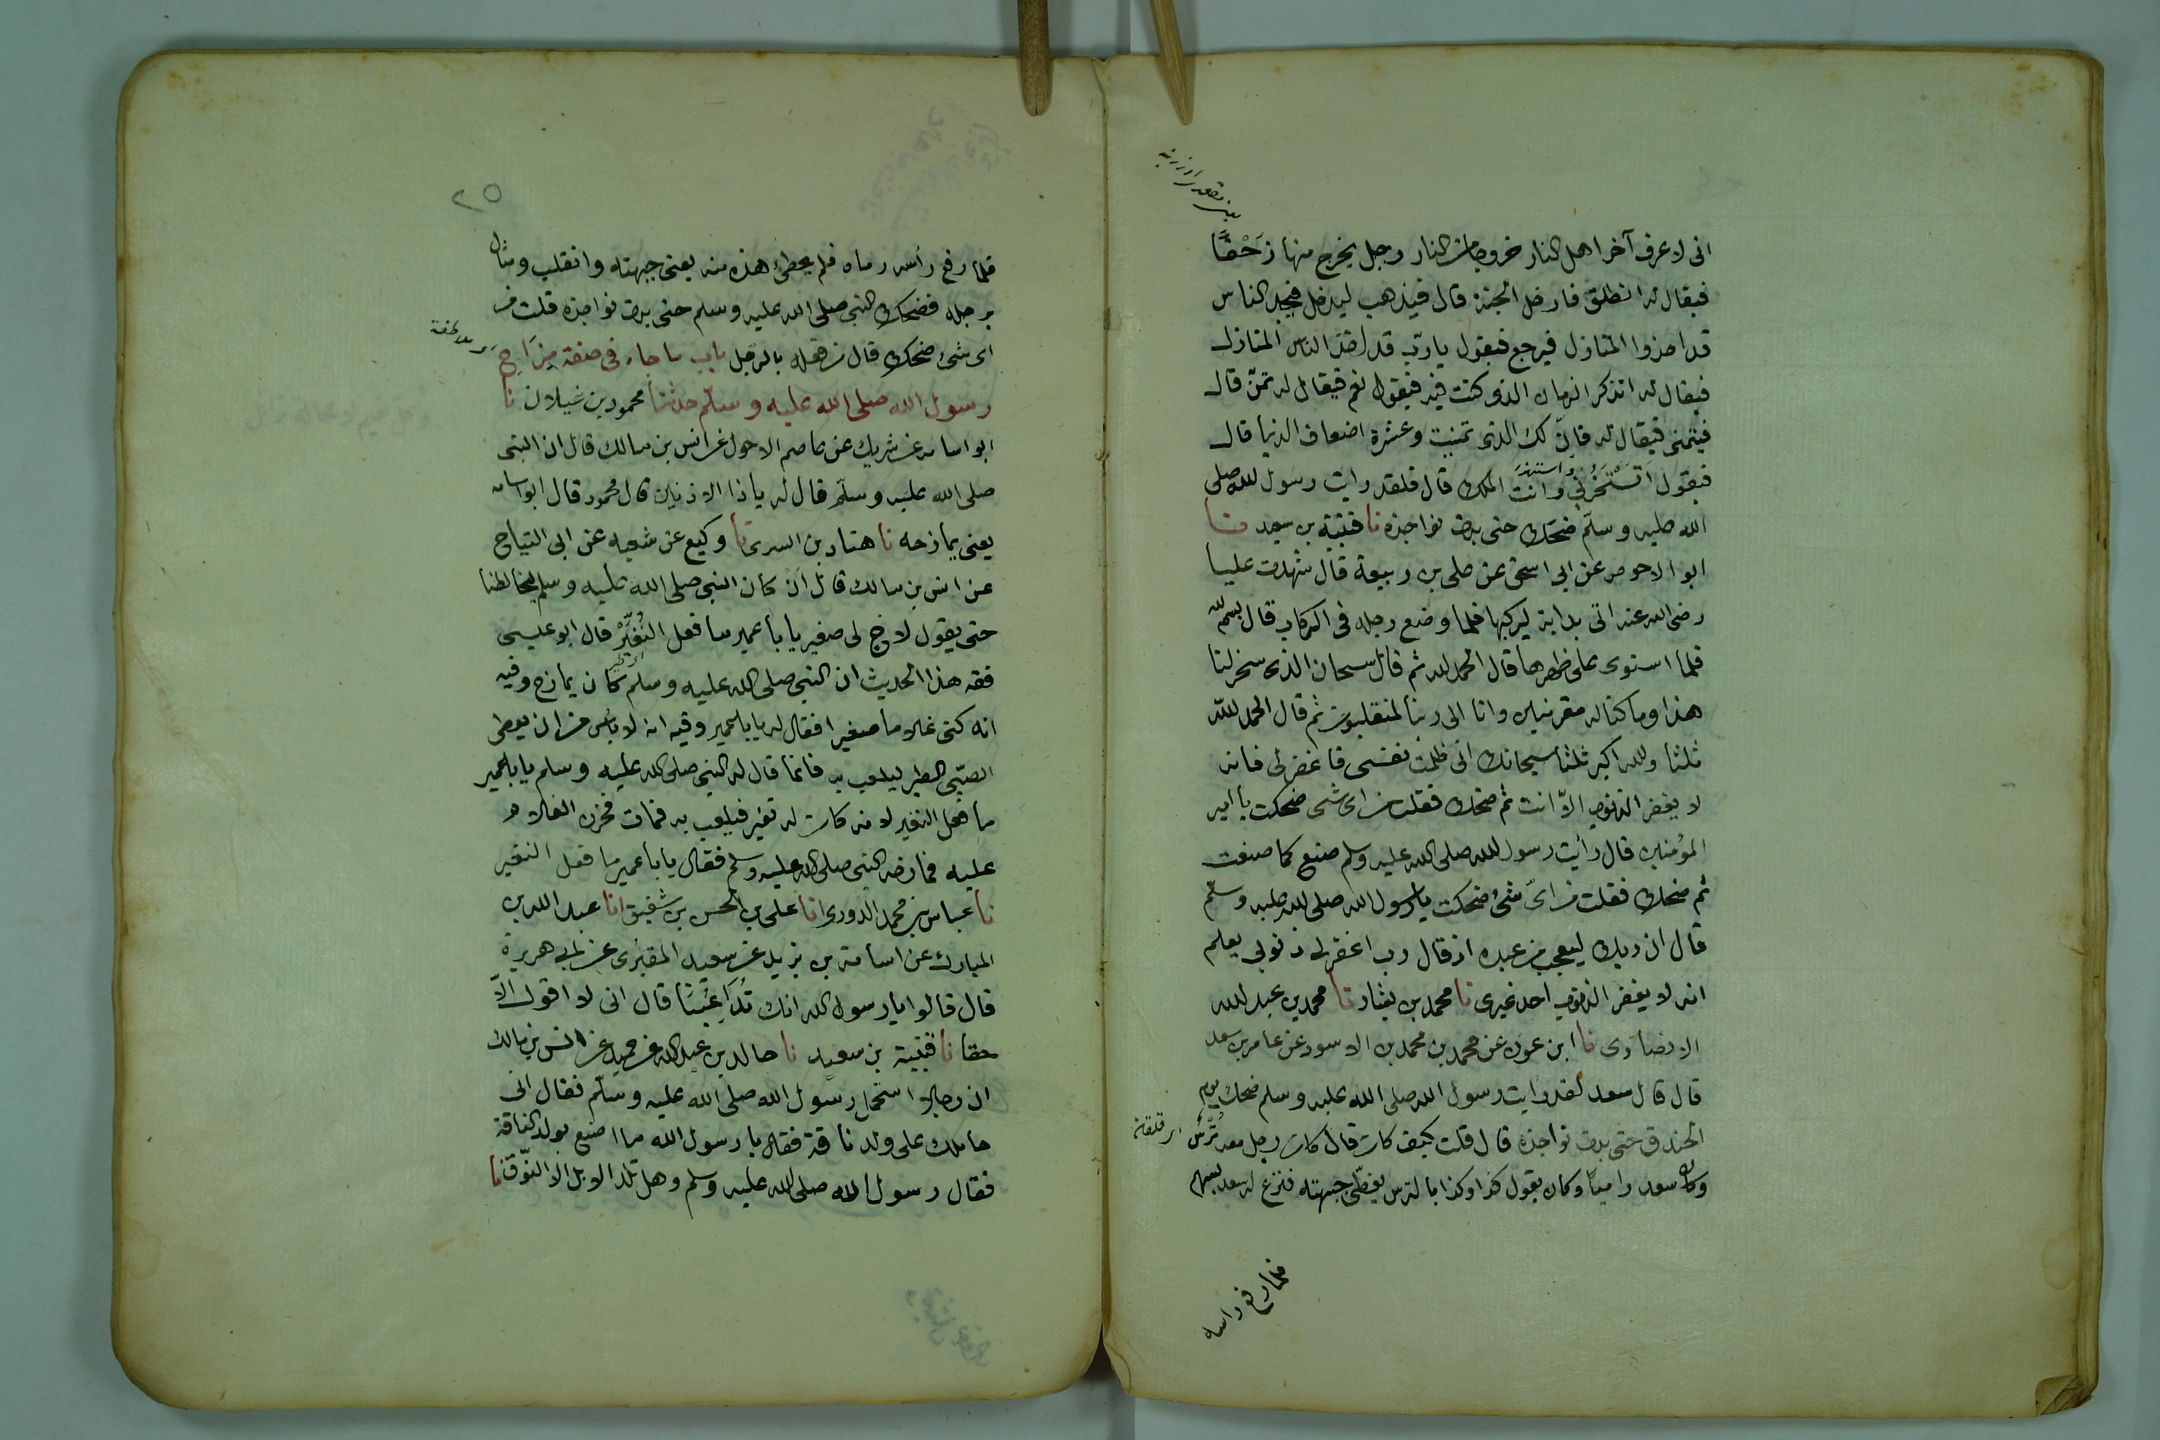 انى لاعرف آخر اهل النار خروجا من النار رجل يخرج منها زَحْفًا
فيقال له انطلق فادخل الجنة قال فيذهب ليدخل فيجد الناس
قد اخذوا المنازل فيرجع فيقول يا ربّ قد اخذ الناس المنازل
فيقال له اتذكر الزمان الذى كنت فيه فيقول نعم فيقال له تمنّ قال
فيتمنى فيقال له فانّ لك الذى تمنيت وعشرة اضعاف الدنيا قال
فيقول اَتَسْخَرُنى وانت الملك قال فلقد رايت رسول الله صلى
الله عليه وسلّم ضحك حتى بدت نواجذه نا قتيبة بن سعيد نا
ابو الاحوص عن ابى اسحق عن على بن ربيعة قال شهدت عليا
رضى الله عنه اتى بدابة ليركبها فلما وضع رجله فى الركاب قال بسم الله
فلما استوى على ظهرها قال الحمد لله ثم قال سبحان الذى سخر لنا
هذا وما كنا له مقرنين وانا الى ربنا لمنقلبون ثم قال الحمد للّه
ثلثا والله اكبر ثلثا سبحانك انى ظلمت نفسى فاغفر لى فانه
لا يغفر الذنوب الاّ انت ثم ضحك فقلت من اى شى ضحكت يا امير
المؤمنين قال رأيت رسول الله صلى الله عليه وسلم صنع كما صنعت
ثم ضحك فقلت من اىّ شئ ضحكت يا رسول الله صلى الله عليه وسلّم
قال ان ربك ليعجب من عبده اذ قال رب اغفر لى ذنوبى يعلم
انه لا يغفر الذنوب احد غيرى نا محمد بن بشار نا محمد بن عبد الله
الانصارى نا ابن عون عن محمد بن محمد بن الاسود عن عامر بن سعد
قال قال سعد لقد رايت رسول الله صلى الله عليه وسلم ضحك يوم
الخندق حتى بدت نواجذه قال قلت كيف كان قال كان رجل معه تُرْسٌ
وكان سعد راميًا وكان يقول كذا وكذا بالترس يغطّى جبهته فنزع له سعد بسهم
فلما رفع راسه
٢٥
فلما رفع رأسه رماه فلم يخطئ هذه منه يعنى جبهته وانقلب وشال
برجله فضحك النبى صلى الله عليه وسلم حتى بدت نواجذه قلت من
اى شئ ضحك قال من فعله بالرجل باب ما جاء فى صفة مِزَاحِ
رسول الله صلى الله عليه وسلّم حدثنا محمود بن غيلان نا
ابو اسامه عن شريك عن عاصم الاحول عن انس بن مالك قال ان النبى
صلى الله عليه وسلّم قال له يا ذا الاذنين قال محمود قال ابو اسامه
يعنى يمازحه نا هناد بن السرى نا وكيع عن شعبه عن ابى التياح
عن انس بن مالك قال اَنْ كان النبى صلى الله عليه وسلم ليخالطنا
حتى يقول لاخ لى صغير يا با عمير ما فعل النُغَيْر قال ابو عيسى
فقه هذا الحديث ان النبى صلى الله عليه وسلم كان يمازح وفيه
انه كنى غلاما صغيرا فقال له يا با عمير وفيه انه لا باس من ان يعطى
الصبّى الطير ليلعب به فانما قال له النبى صلى الله عليه وسلم يا با عمير
ما فعل النغير لانه كان له نغير فيلعب به فمات فحزن الغلام
عليه فمازحه النبى صلى الله عليه وسلم فقال يا با عمير ما فعل النغير
نا عباس بن محمد الدورى انا على بن الحسن بن شقيق انا عبد الله بن
المبارك عن اسامة بن يزيد عن سعيد المقبرى عن ابى هريرة
قال قالوا يا رسول الله انك تُدَاعِبُنَا قال انى لا اقول الاّ
حقا نا قتيبة بن سعيد نا خالد بن عبد الله عن حميد عن انس بن مالك
ان رجلا استحمل رسول الله صلى الله عليه وسلّم فقال انى
حاملك على ولد ناقة فقال يا رسول الله ما اصنع بولد الناقة
فقال رسول الله صلى الله عليه وسلم وهل تلد الابل الا النّوق نا